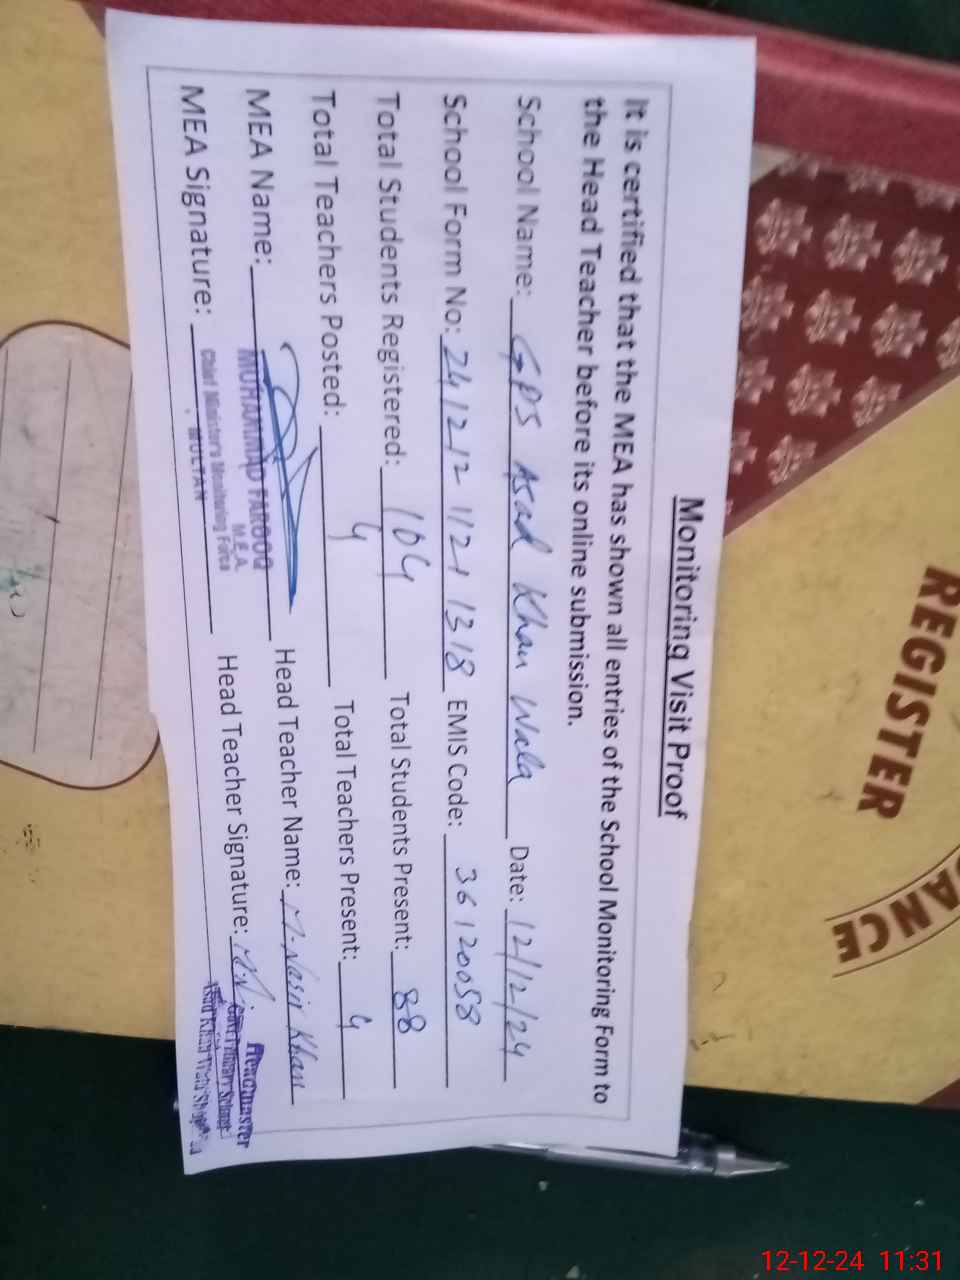 Monitoring Visit Proof
It is certified that the MEA has shown all entries of the School Monitoring Form to
the Head Teacher before its online submission.
School Name: GPS Asad Khan Wala Date: 12/12/24
School Form No: 241212 1121318 EMIS Code: 36120058
Total Students Registered: 104 Total Students Present: 88
Total Teachers Posted: 4 Total Teachers Present: 4
MEA Name: MUHAMMAD FAROOQ Head Teacher Name: M. Nasir Khan
M.E.A.
MEA Signature: Chief Minister's Monitoring Force Head Teacher Signature:
MULTAN
Headmaster
Govt. Primary School
Asad Khan Wala
REGISTER
ANCE
12-12-24 11:31